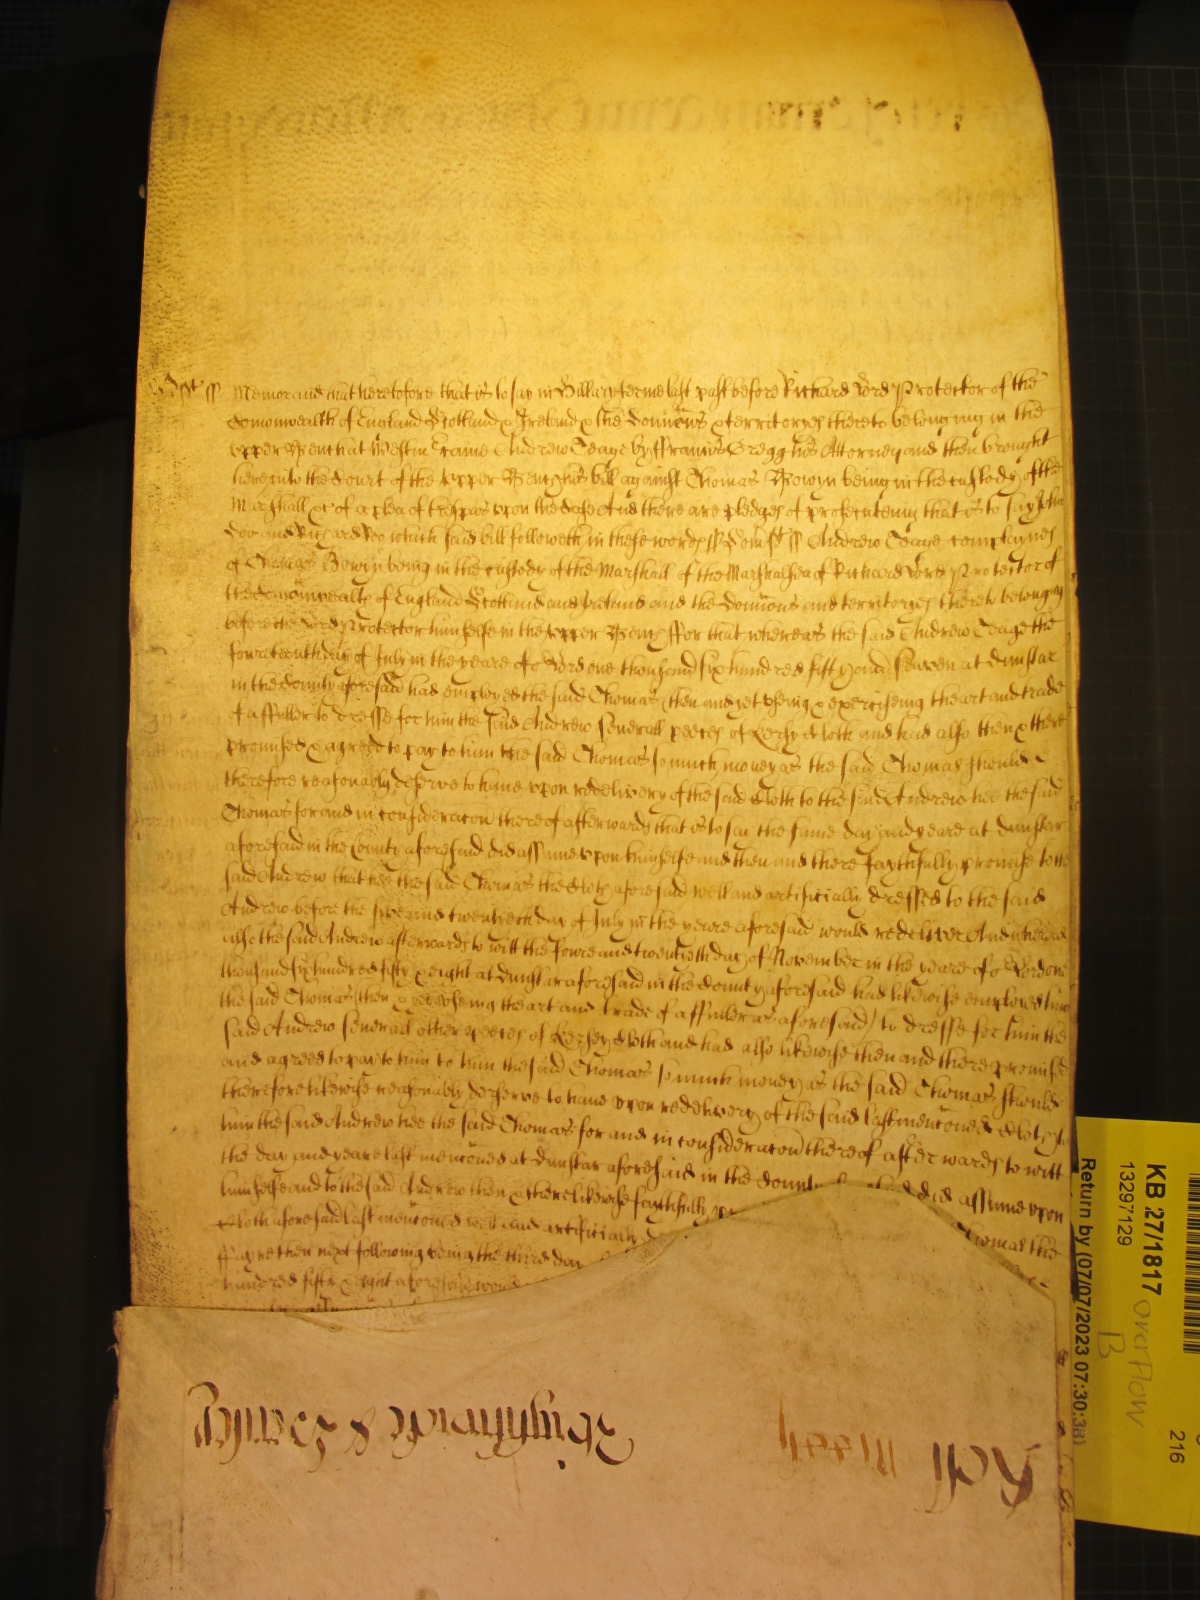 Somst ss Memorand that heretofore that is to say in Hillary terme last past before Richard Lord Protector of the
Comonwealth of England Scotland & Ireland & the Dominions & territoryes thereto belonging in the
upper Bench at Westm came Andrew Teage by Francis Gregg his Attorney and then brought
here into the Court of the upper Bench his bill against Thomas Bowyn being in the custody of the
Marshall &c of a plea of trespas upon the case And there are pledges of prosecuteing that is to say John
Doo and Richard Roo which said bill followeth in these words ss Somst ss Andrew Teage complaynes
of Thomas Bowyn being in the custody of the Marshall of the Marshalsea of Richard Lord Protector of
the Comonwealth of England Scotland and Ireland and the Dominions and territoryes thereto belonging
before the Lord Protector himselfe in the upper Bench For that whereas the said Andrew Teage the
fowreteenth day of July in the yeare of o Lord one thousand six hundred fifty and seaven at Dunstar
in the County aforesaid had employed the said Thomas then and yet useing & exerciseing the art and trade
of a ffuller to dresse for him the said Andrew severall peeces of Kersy Cloth and had also then & there
promised & agreed to pay to him the said Thomas so much money as the said Thomas should
therefore reasonably deserve to have upon redelivery of the said Cloth to the said Andrew hee the said
Thomas for and in consideracon thereof afterwards that is to say the same day and yeare at Dunstar
aforesaid in the County aforesaid did assume upon himselfe and then and there faythfully promise to the
said Andrew that hee the said Thomas the Cloth aforesaid well and artificially dressed to the said
Andrew before the five and twentieth day of July in the yeare aforesaid would redeliver And whereas
also the said Andrew afterwards to witt the fowre and twentyeth day of November in the yeare of o Lord one
thousand six hundred fifty & eight at Dunstar aforesaid in the County aforesaid had likewise employed him
the said Thomas (then & exerciseing the art and trade of a ffuller as aforesaid) to dresse for him the
said Andrew severall other peeces of Kersey Cloth and had also likewise then and there promised
and agreed to pay to him to him the said Thomas so much money as the said Thomas should
therefore likewise reasonably deserve to have upon redelivery of the said last mentioned Cloth to
him the said Andrew hee the said Thomas for and in consideracon thereof afterwards to witt
the day and yeare last menconed at Dunstar aforesaid in the County did assume upon
himselfe and to the said Andrew then & there likewise faythfully Thomas the
Cloth aforesaid last menconed well and artificially
ffayre then next following being the third day
hundred fifty & eight aforesaid would
Roll
KB 27/1817
13297129
overflow
B
216
Return by (07/07/2023 07:30:38)